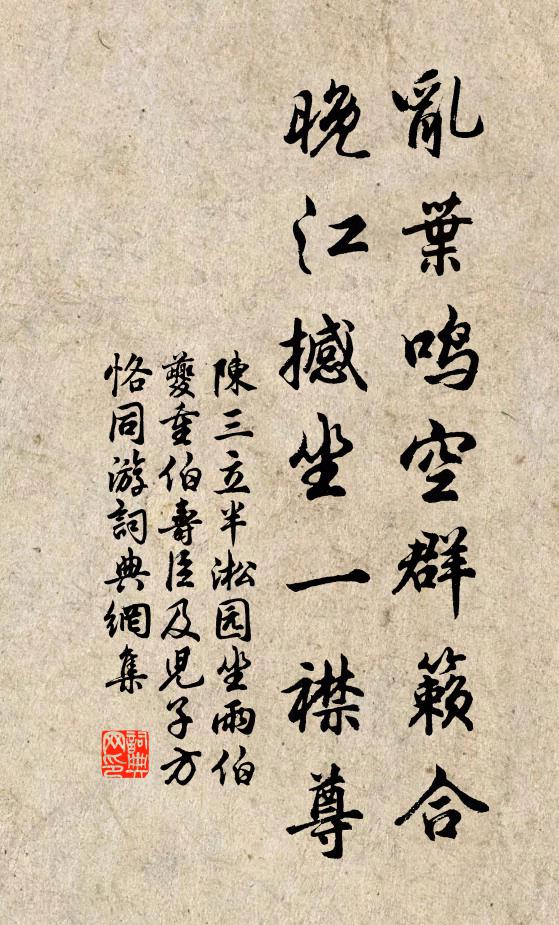 亂葉鳴空群籟合
晚江撼坐一襟尊
陳三立半淞园坐雨伯
夔重伯壽臣及児子方
恪同游詞典網集
詞典
网印